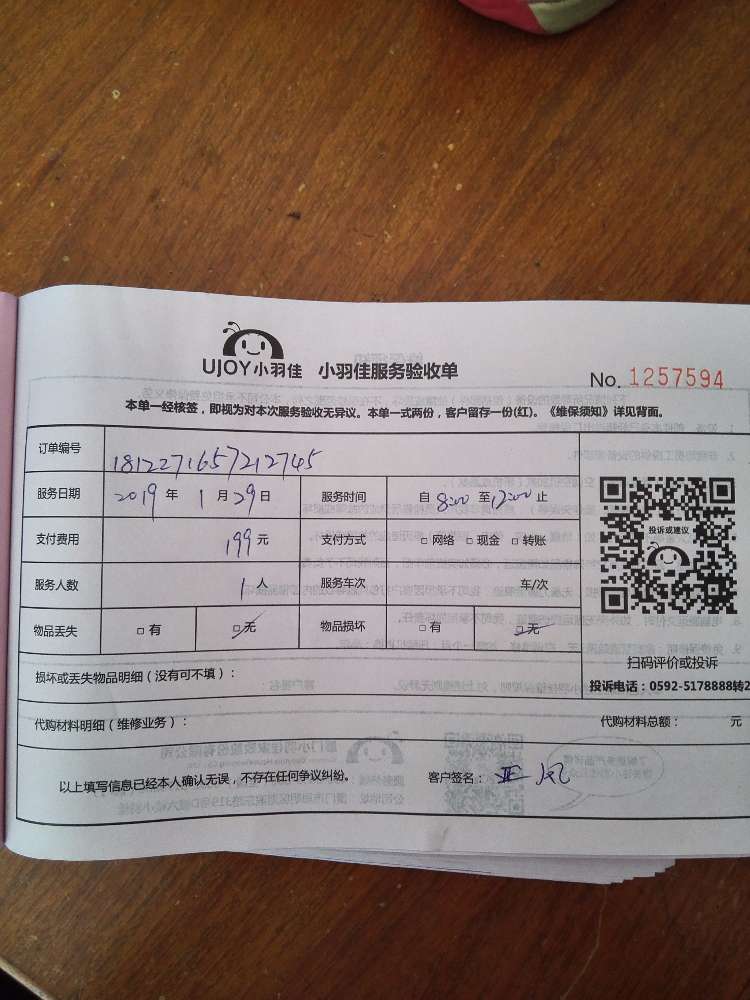 UJOY小羽佳 小羽佳服务验收单
No. 1257594
本单一经核签，即视为对本次服务验收无异议。本单一式两份，客户留存一份(红)。《维保须知》详见背面。
订单编号 1812271657212745
服务日期 2019 年 1 月 29 日 服务时间 自 8:00 至 12:00 止
支付费用 199 元 支付方式 □ 网络 □ 现金 □ 转账
服务人数 1 人 服务车次 车/次
物品丢失 □ 有 □ 无 物品损坏 □ 有 □ 无
投诉或建议
扫码评价或投诉
投诉电话：0592-5178888转2
损坏或丢失物品明细（没有可不填）：
代购材料明细（维修业务）： 代购材料总额： 元
以上填写信息已经本人确认无误，不存在任何争议纠纷。 客户签名：